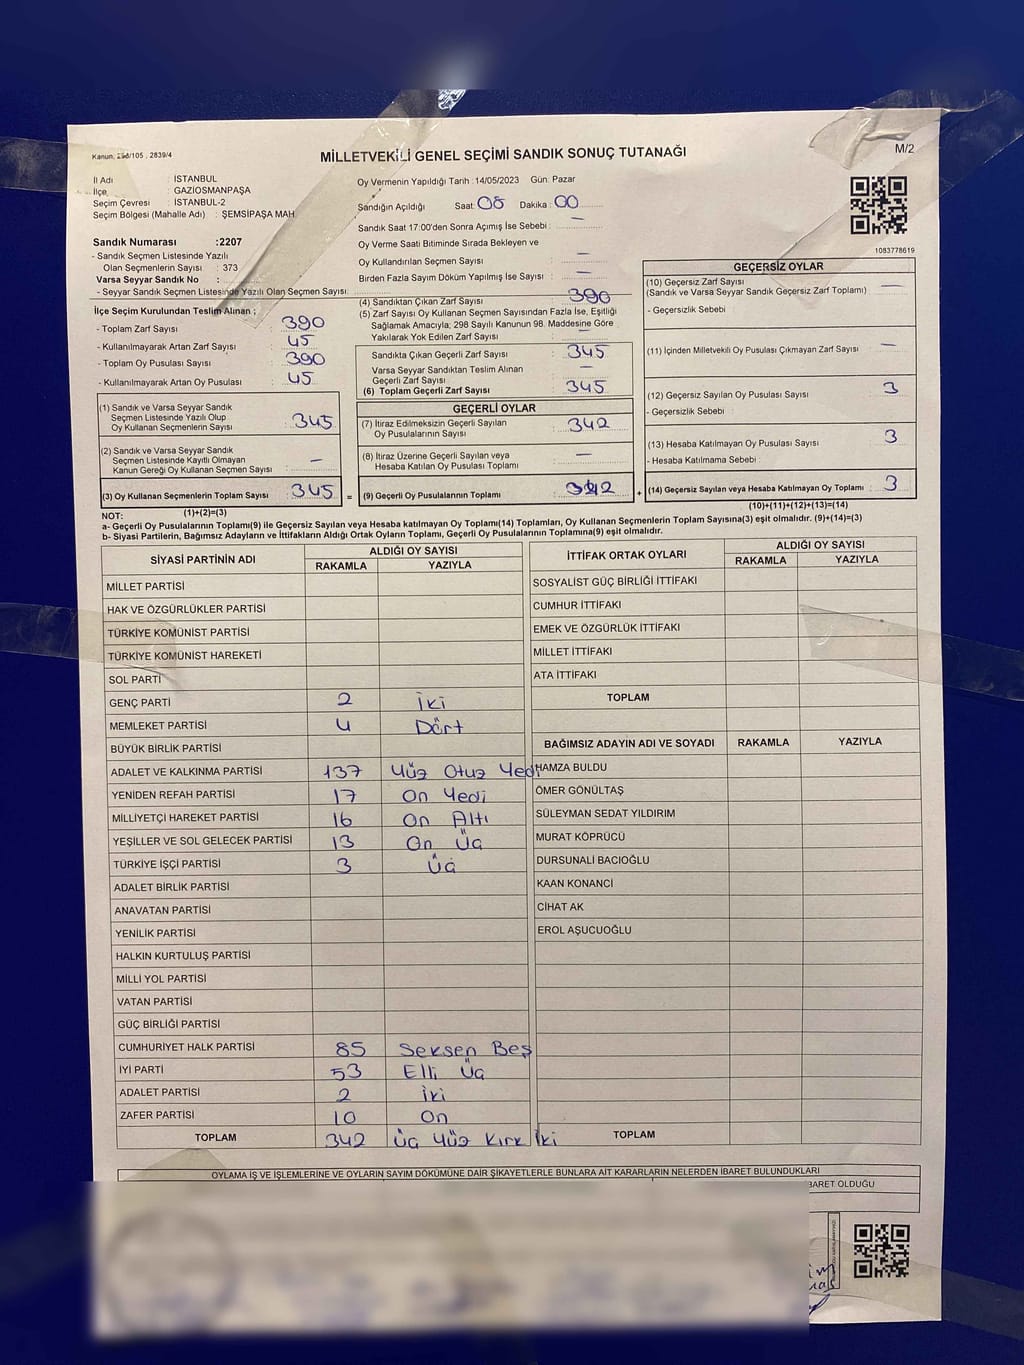 Kanun, 298/105 , 2839/4
MİLLETVEKİLİ GENEL SEÇİMİ SANDIK SONUÇ TUTANAĞI
M/2
İl Adı : İSTANBUL
İlçe : GAZİOSMANPAŞA
Seçim Çevresi : İSTANBUL-2
Seçim Bölgesi (Mahalle Adı) : ŞEMSİPAŞA MAH
Sandık Numarası :2207
- Sandık Seçmen Listesinde Yazılı
Olan Seçmenlerin Sayısı : 373
Varsa Seyyar Sandık No :
- Seyyar Sandık Seçmen Listesinde Yazılı Olan Seçmen Sayısı:
İlçe Seçim Kurulundan Teslim Alınan ;
- Toplam Zarf Sayısı : 390
- Kullanılmayarak Artan Zarf Sayısı : 45
- Toplam Oy Pusulası Sayısı : 390
- Kullanılmayarak Artan Oy Pusulası : 45
(1) Sandık ve Varsa Seyyar Sandık
Seçmen Listesinde Yazılı Olup
Oy Kullanan Seçmenlerin Sayısı : 345
(2) Sandık ve Varsa Seyyar Sandık
Seçmen Listesinde Kayıtlı Olmayan
Kanun Gereği Oy Kullanan Seçmen Sayısı : —
(3) Oy Kullanan Seçmenlerin Toplam Sayısı : 345 =
Oy Vermenin Yapıldığı Tarih :14/05/2023 Gün: Pazar
Sandığın Açıldığı Saat: 08 Dakika : 00
Sandık Saat 17:00'den Sonra Açımış İse Sebebi : —
Oy Verme Saati Bitiminde Sırada Bekleyen ve
Oy Kullandırılan Seçmen Sayısı : —
Birden Fazla Sayım Döküm Yapılmış İse Sayısı : —
(4) Sandıktan Çıkan Zarf Sayısı : 390
(5) Zarf Sayısı Oy Kullanan Seçmen Sayısından Fazla İse, Eşitliği
Sağlamak Amacıyla; 298 Sayılı Kanunun 98. Maddesine Göre
Yakılarak Yok Edilen Zarf Sayısı : —
Sandıkta Çıkan Geçerli Zarf Sayısı : 345
Varsa Seyyar Sandıktan Teslim Alınan
Geçerli Zarf Sayısı : —
(6) Toplam Geçerli Zarf Sayısı : 345
GEÇERLİ OYLAR
(7) İtiraz Edilmeksizin Geçerli Sayılan
Oy Pusulalarının Sayısı : 342
(8) İtiraz Üzerine Geçerli Sayılan veya
Hesaba Katılan Oy Pusulası Toplamı : —
(9) Geçerli Oy Pusulalarının Toplamı : 342 +
1083778619
GEÇERSİZ OYLAR
(10) Geçersiz Zarf Sayısı
(Sandık ve Varsa Seyyar Sandık Geçersiz Zarf Toplamı) : —
- Geçersizlik Sebebi :
(11) İçinden Milletvekili Oy Pusulası Çıkmayan Zarf Sayısı : —
(12) Geçersiz Sayılan Oy Pusulası Sayısı : 3
- Geçersizlik Sebebi :
(13) Hesaba Katılmayan Oy Pusulası Sayısı : 3
- Hesaba Katılmama Sebebi :
(14) Geçersiz Sayılan veya Hesaba Katılmayan Oy Toplamı : 3
(10)+(11)+(12)+(13)=(14)
NOT: (1)+(2)=(3)
a- Geçerli Oy Pusulalarının Toplamı(9) ile Geçersiz Sayılan veya Hesaba Katılmayan Oy Toplamı(14) Toplamları, Oy Kullanan Seçmenlerin Toplam Sayısına(3) eşit olmalıdır. (9)+(14)=(3)
b- Siyasi Partilerin, Bağımsız Adayların ve İttifakların Aldığı Ortak Oyların Toplamı, Geçerli Oy Pusulalarının Toplamına(9) eşit olmalıdır.
SİYASİ PARTİNİN ADI
ALDIĞI OY SAYISI
RAKAMLA YAZIYLA
MİLLET PARTİSİ
HAK VE ÖZGÜRLÜKLER PARTİSİ
TÜRKİYE KOMÜNİST PARTİSİ
TÜRKİYE KOMÜNİST HAREKETİ
SOL PARTİ
GENÇ PARTİ 2 İki
MEMLEKET PARTİSİ 4 Dört
BÜYÜK BİRLİK PARTİSİ
ADALET VE KALKINMA PARTİSİ 137 Yüz Otuz Yedi
YENİDEN REFAH PARTİSİ 17 On Yedi
MİLLİYETÇİ HAREKET PARTİSİ 16 On Altı
YEŞİLLER VE SOL GELECEK PARTİSİ 13 On Üç
TÜRKİYE İŞÇİ PARTİSİ 3 Üç
ADALET BİRLİK PARTİSİ
ANAVATAN PARTİSİ
YENİLİK PARTİSİ
HALKIN KURTULUŞ PARTİSİ
MİLLİ YOL PARTİSİ
VATAN PARTİSİ
GÜÇ BİRLİĞİ PARTİSİ
CUMHURİYET HALK PARTİSİ 85 Seksen Beş
İYİ PARTİ 53 Elli Üç
ADALET PARTİSİ 2 İki
ZAFER PARTİSİ 10 On
TOPLAM 342 Üç Yüz Kırk İki
İTTİFAK ORTAK OYLARI
ALDIĞI OY SAYISI
RAKAMLA YAZIYLA
SOSYALİST GÜÇ BİRLİĞİ İTTİFAKI
CUMHUR İTTİFAKI
EMEK VE ÖZGÜRLÜK İTTİFAKI
MİLLET İTTİFAKI
ATA İTTİFAKI
TOPLAM
BAĞIMSIZ ADAYIN ADI VE SOYADI RAKAMLA YAZIYLA
HAMZA BULDU
ÖMER GÖNÜLTAŞ
SÜLEYMAN SEDAT YILDIRIM
MURAT KÖPRÜCÜ
DURSUNALİ BACIOĞLU
KAAN KONANCİ
CİHAT AK
EROL AŞUCUOĞLU
TOPLAM
OYLAMA İŞ VE İŞLEMLERİNE VE OYLARIN SAYIM DÖKÜMÜNE DAİR ŞİKAYETLERLE BUNLARA AİT KARARLARIN NELERDEN İBARET BULUNDUKLARI
BARET OLDUĞU